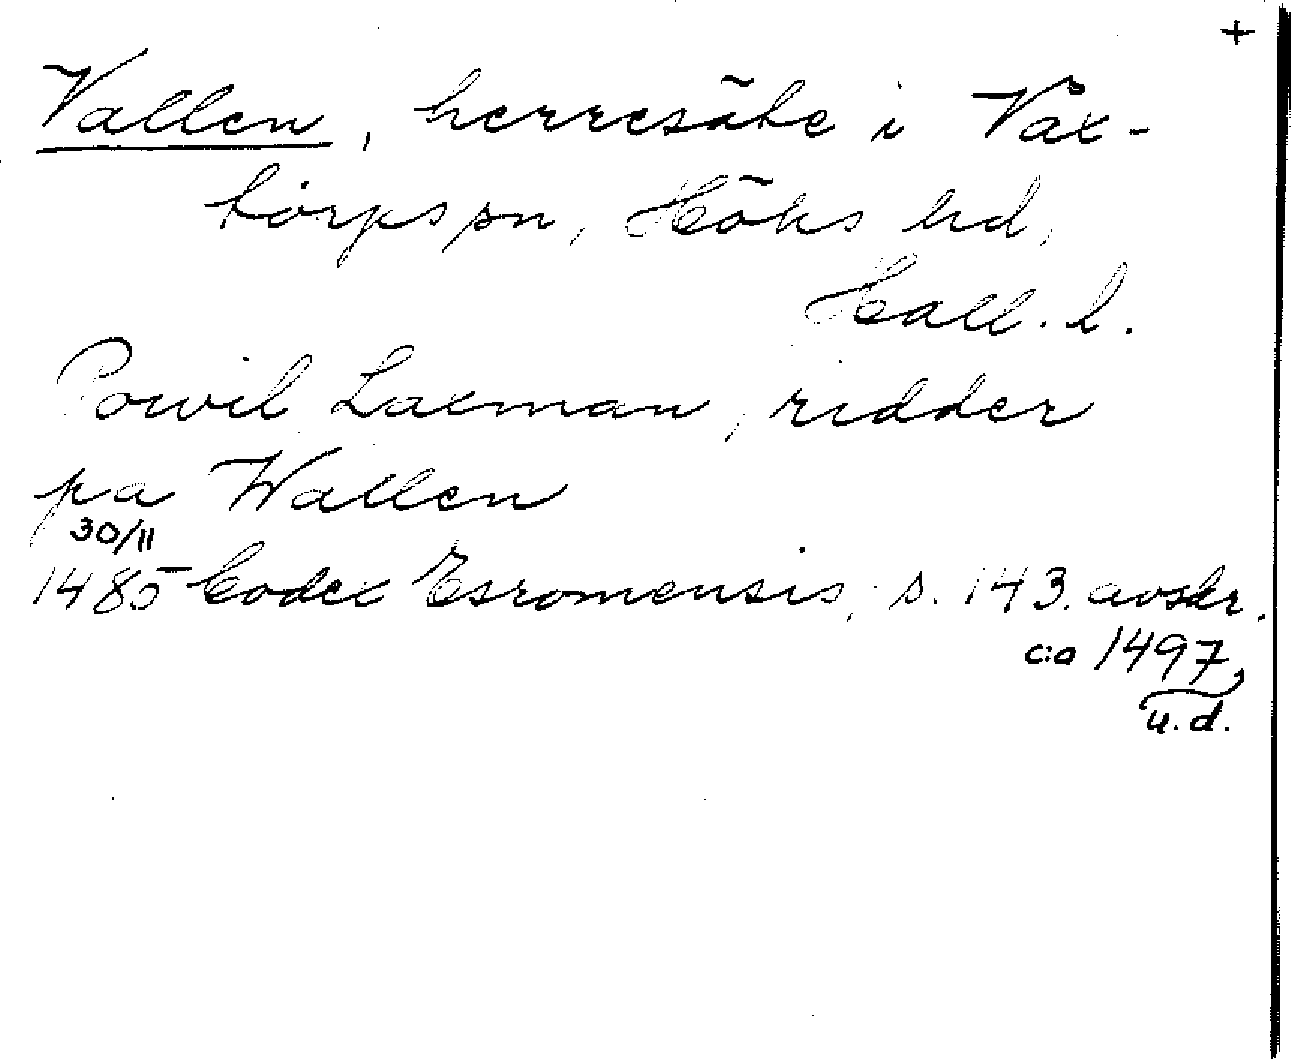 +
Vallen, herresäte i Våx-
torps sn, Höks hd,
Hall. l.
Powil Laxman, ridder
pa Wallen
30/11
1485 Codex Esromensis, s. 143. avskr.
c:a 1497,
u. d.